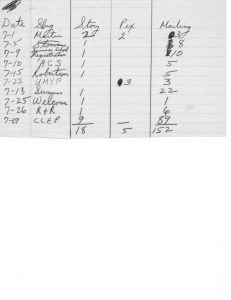 Date Slug Story Pix Mailing
7-1 Martin 2 2
7-5 1 8
7-9 Registration 1 10
7-10 ACS 1 5
7-15 Robertson 1 5
7-23 UMYF 3 3
7-18 Summer 1 22
7-25 Welcome 1 1
7-26 R+R 1 6
7-29 CLEP 9 — 89
18 5 152